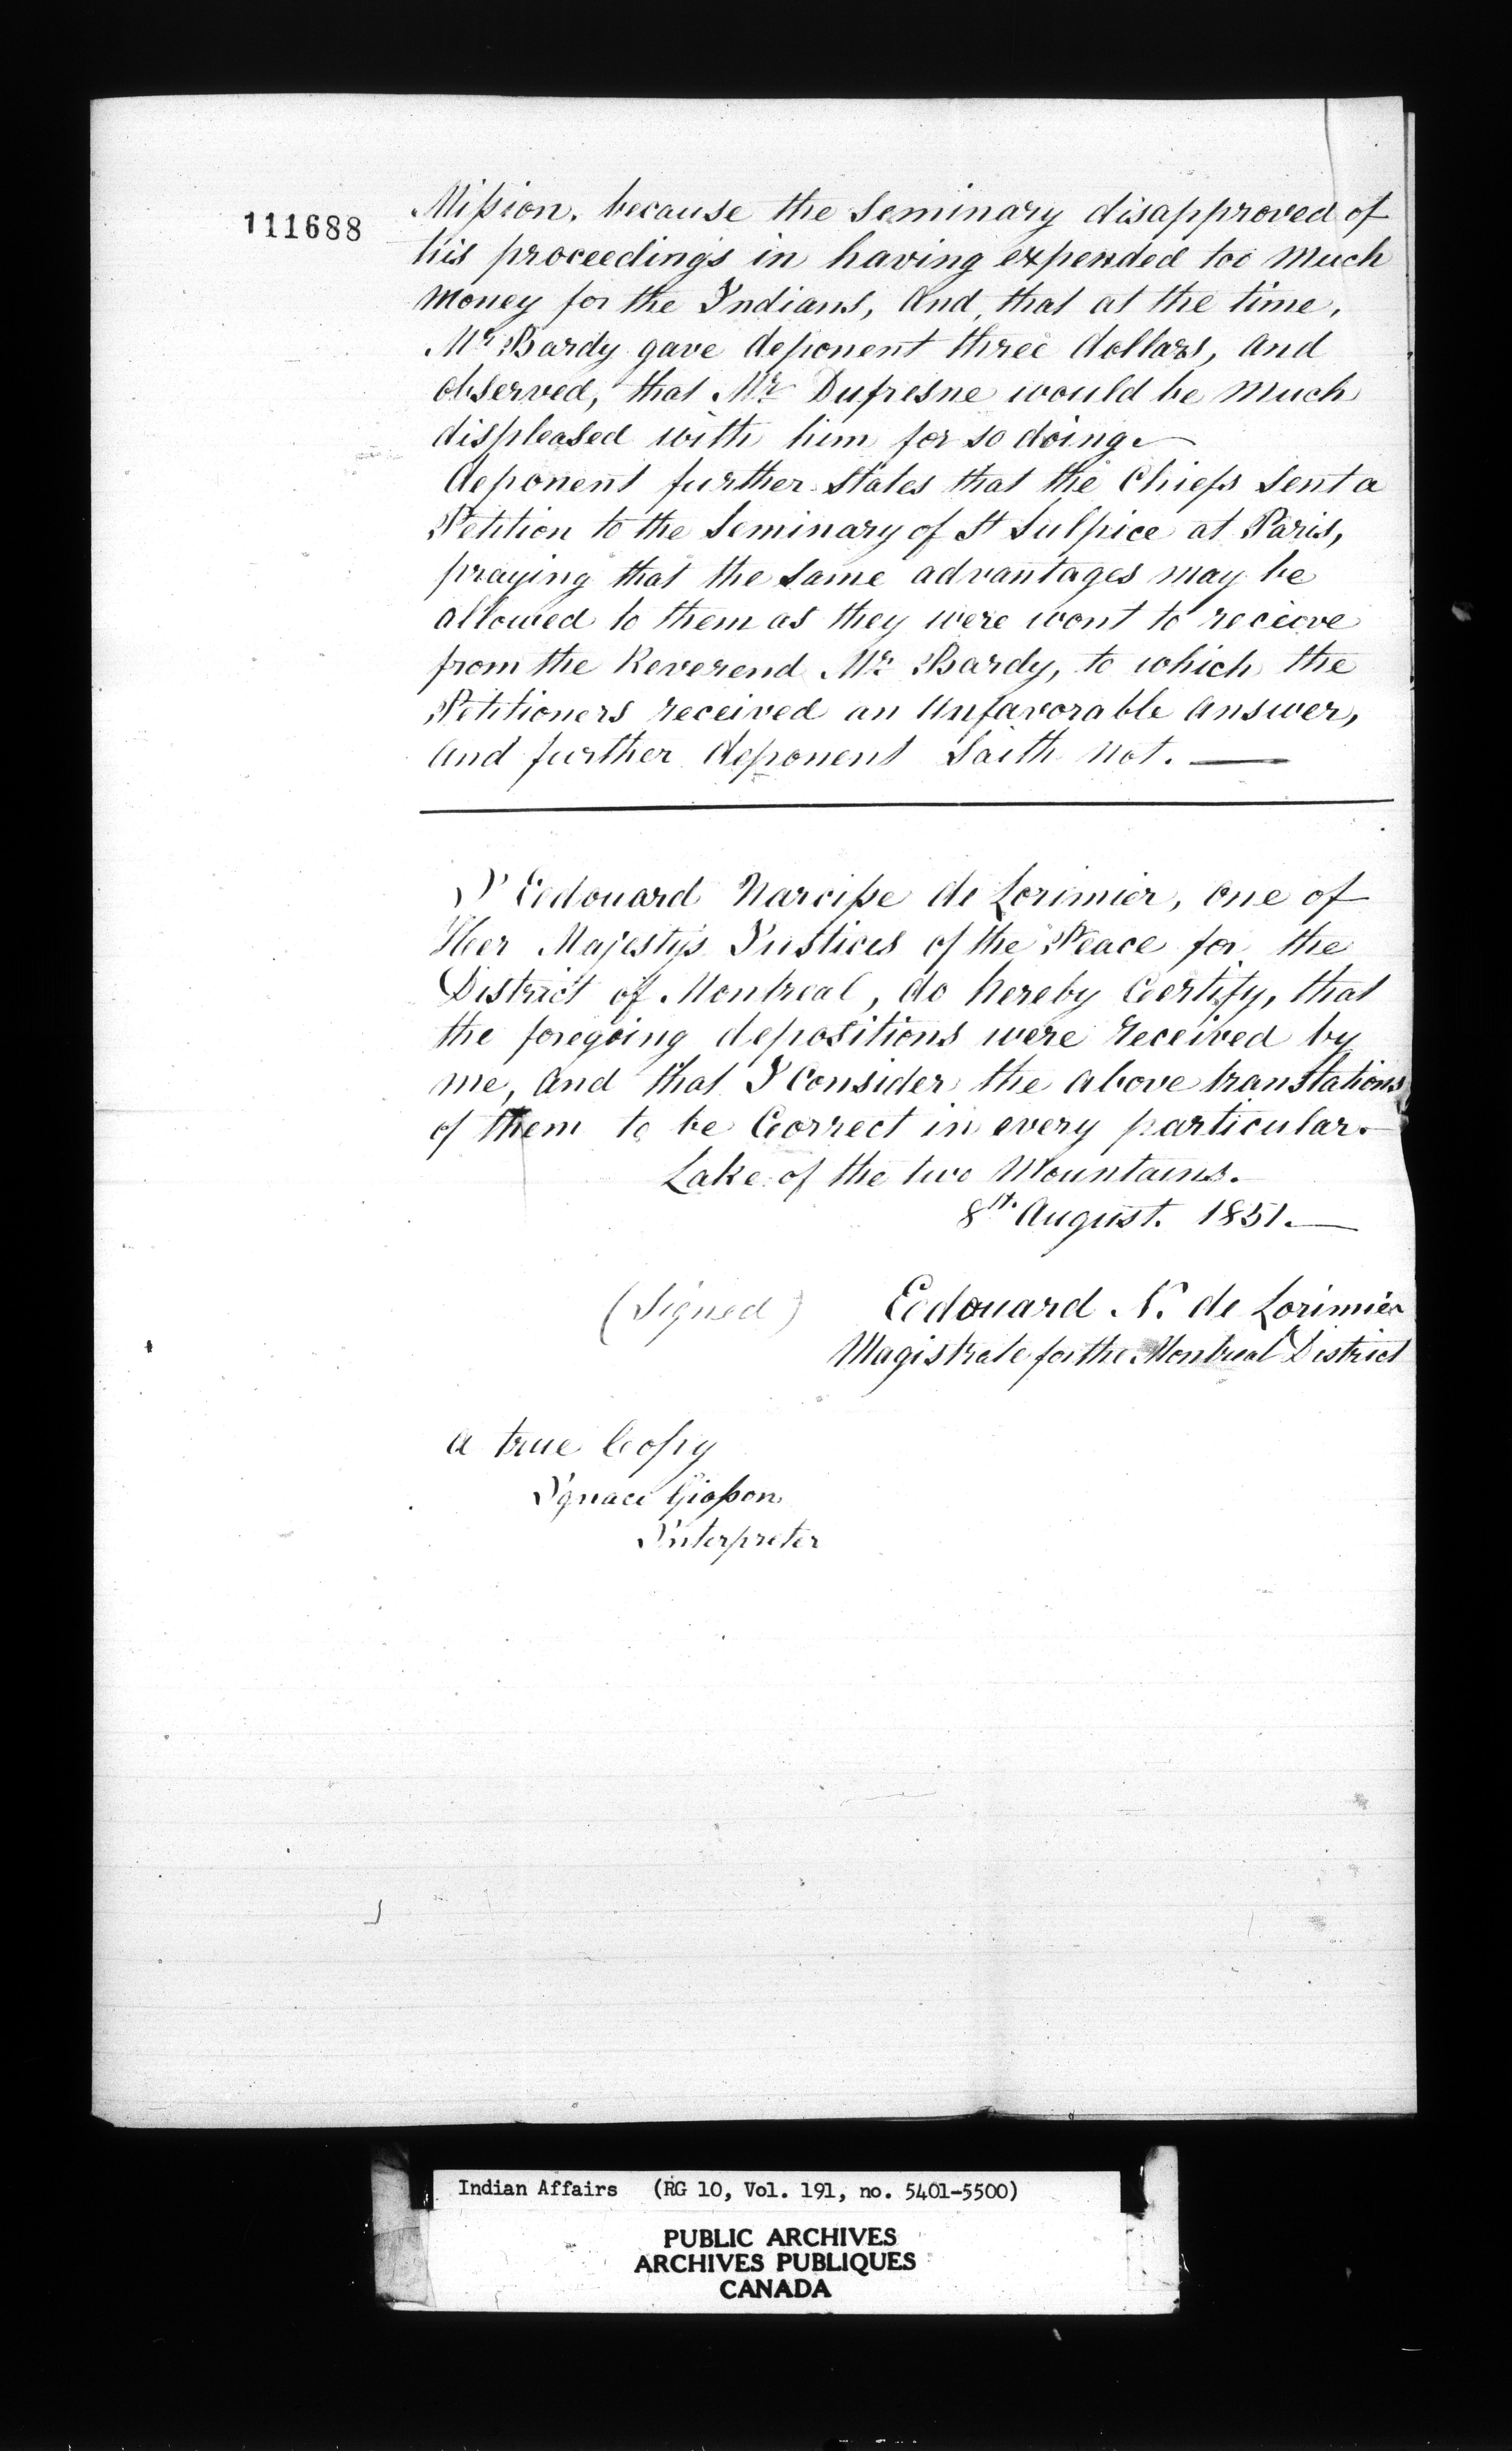 111688
Mission. because the Seminary disapproved of
his proceedings in having expended too much
money for the Indians, and, that at the time,
Mr Bardy gave deponent three dollars, and
observed, that Mr Dufresne would be much
displeased with him for so doing.—
deponent further states that the Chiefs sent a
Petition to the Seminary of St Sulpice at Paris,
praying that the same advantages may be
allowed to them as they were wont to receive
from the Reverend Mr Bardy, to which the
Petitioners received an unfavorable answer,
and further deponent saith not. —
I Eedouard Narcisse de Lorimier, one of
Her Majestys Justices of the Peace for the
District of Montreal, do hereby Certify, that
the foregoing depositions were received by
me, and that I consider the above translations
of them to be Correct in every particular.—
Lake of the two Mountains.
8th August. 1851.—
(Signed) Eedouard N. de Lorimier
Magistrate for the Montreal District
a true Copy
Ignace Giasson
Interpreter
Indian Affairs (RG 10, Vol. 191, no. 5401-5500)
PUBLIC ARCHIVES
ARCHIVES PUBLIQUES
CANADA